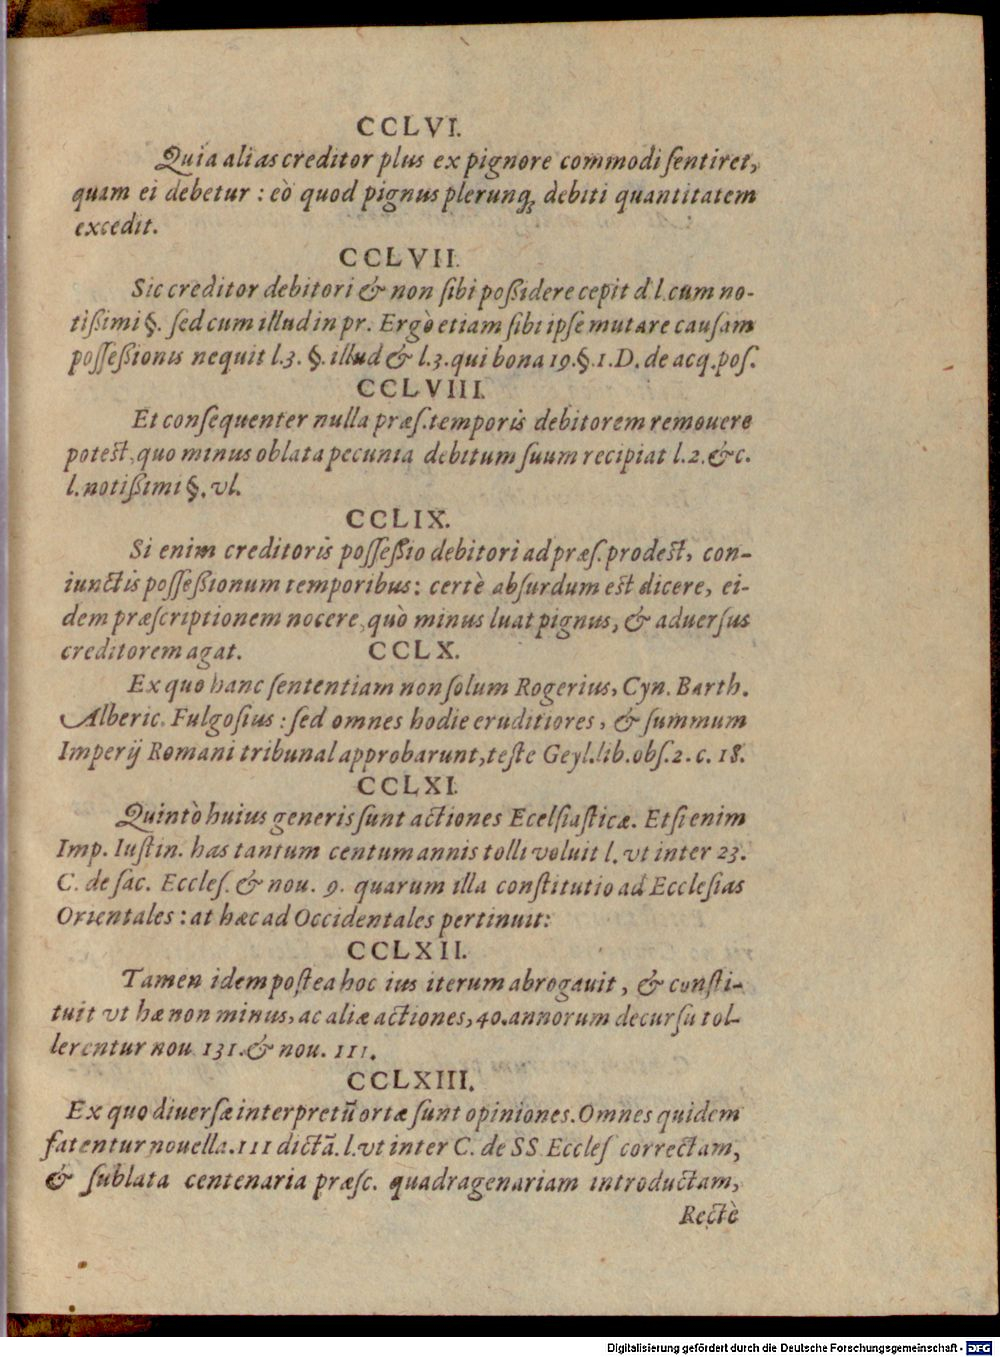 CCLVI.
Quia alias creditor plus ex pignore commodi ſentiret,
quam ei debetur : eò quod pignus plerunq; debiti quantitatem
excedit.
CCLVII.
Sic creditor debitori & non ſibi poßidere cepit d l. cum no-
tißimi §. ſed cum illud in pr. Ergò etiam ſibi ipſe mutare cauſam
poſſeßionis nequit l.3. §. illud & l.3. qui bona 19.§.1.D. de acq.poſ.
CCLVIII.
Et conſequenter nulla præſ. temporis debitorem remouere
potest, quo minus oblata pecunia debitum ſuum recipiat l.2.&c.
l. notißimi §. vl.
CCLIX.
Si enim creditoris poſſeßio debitori ad præſ. prodest, con-
iunctis poſſeßionum temporibus: certè abſurdum est dicere, ei-
dem præſcriptionem nocere, quò minus luat pignus, & aduerſus
creditorem agat. CCLX.
Ex quo hanc ſententiam non ſolum Rogerius, Cyn. Barth.
Alberic. Fulgoſius : ſed omnes hodie eruditiores, & ſummum
Imperij Romani tribunal approbarunt, teſte Geyl. lib. obſ. 2. c. 18.
CCLXI.
Quintò huius generis ſunt actiones Ecelſiaſticæ. Etſi enim
Imp. Iuſtin. has tantum centum annis tolli voluit l. vt inter 23.
C. de ſac. Eccleſ. & nou. 9. quarum illa conſtitutio ad Eccleſias
Orientales : at hæc ad Occidentales pertinuit:
CCLXII.
Tamen idem poſtea hoc ius iterum abrogauit, & conſti-
tuit vt hæ non minus, ac aliæ actiones, 40. annorum decurſu tol-
lerentur nou 131. & nou. 111.
CCLXIII.
Ex quo diuerſæ interpretũ ortæ ſunt opiniones. Omnes quidem
fatentur nouella. 111 dictã. l. vt inter C. de SS Eccleſ correctam,
& ſublata centenaria præſc. quadragenariam introductam,
Rectè
Digitalisierung gefördert durch die Deutsche Forschungsgemeinschaft - DFG